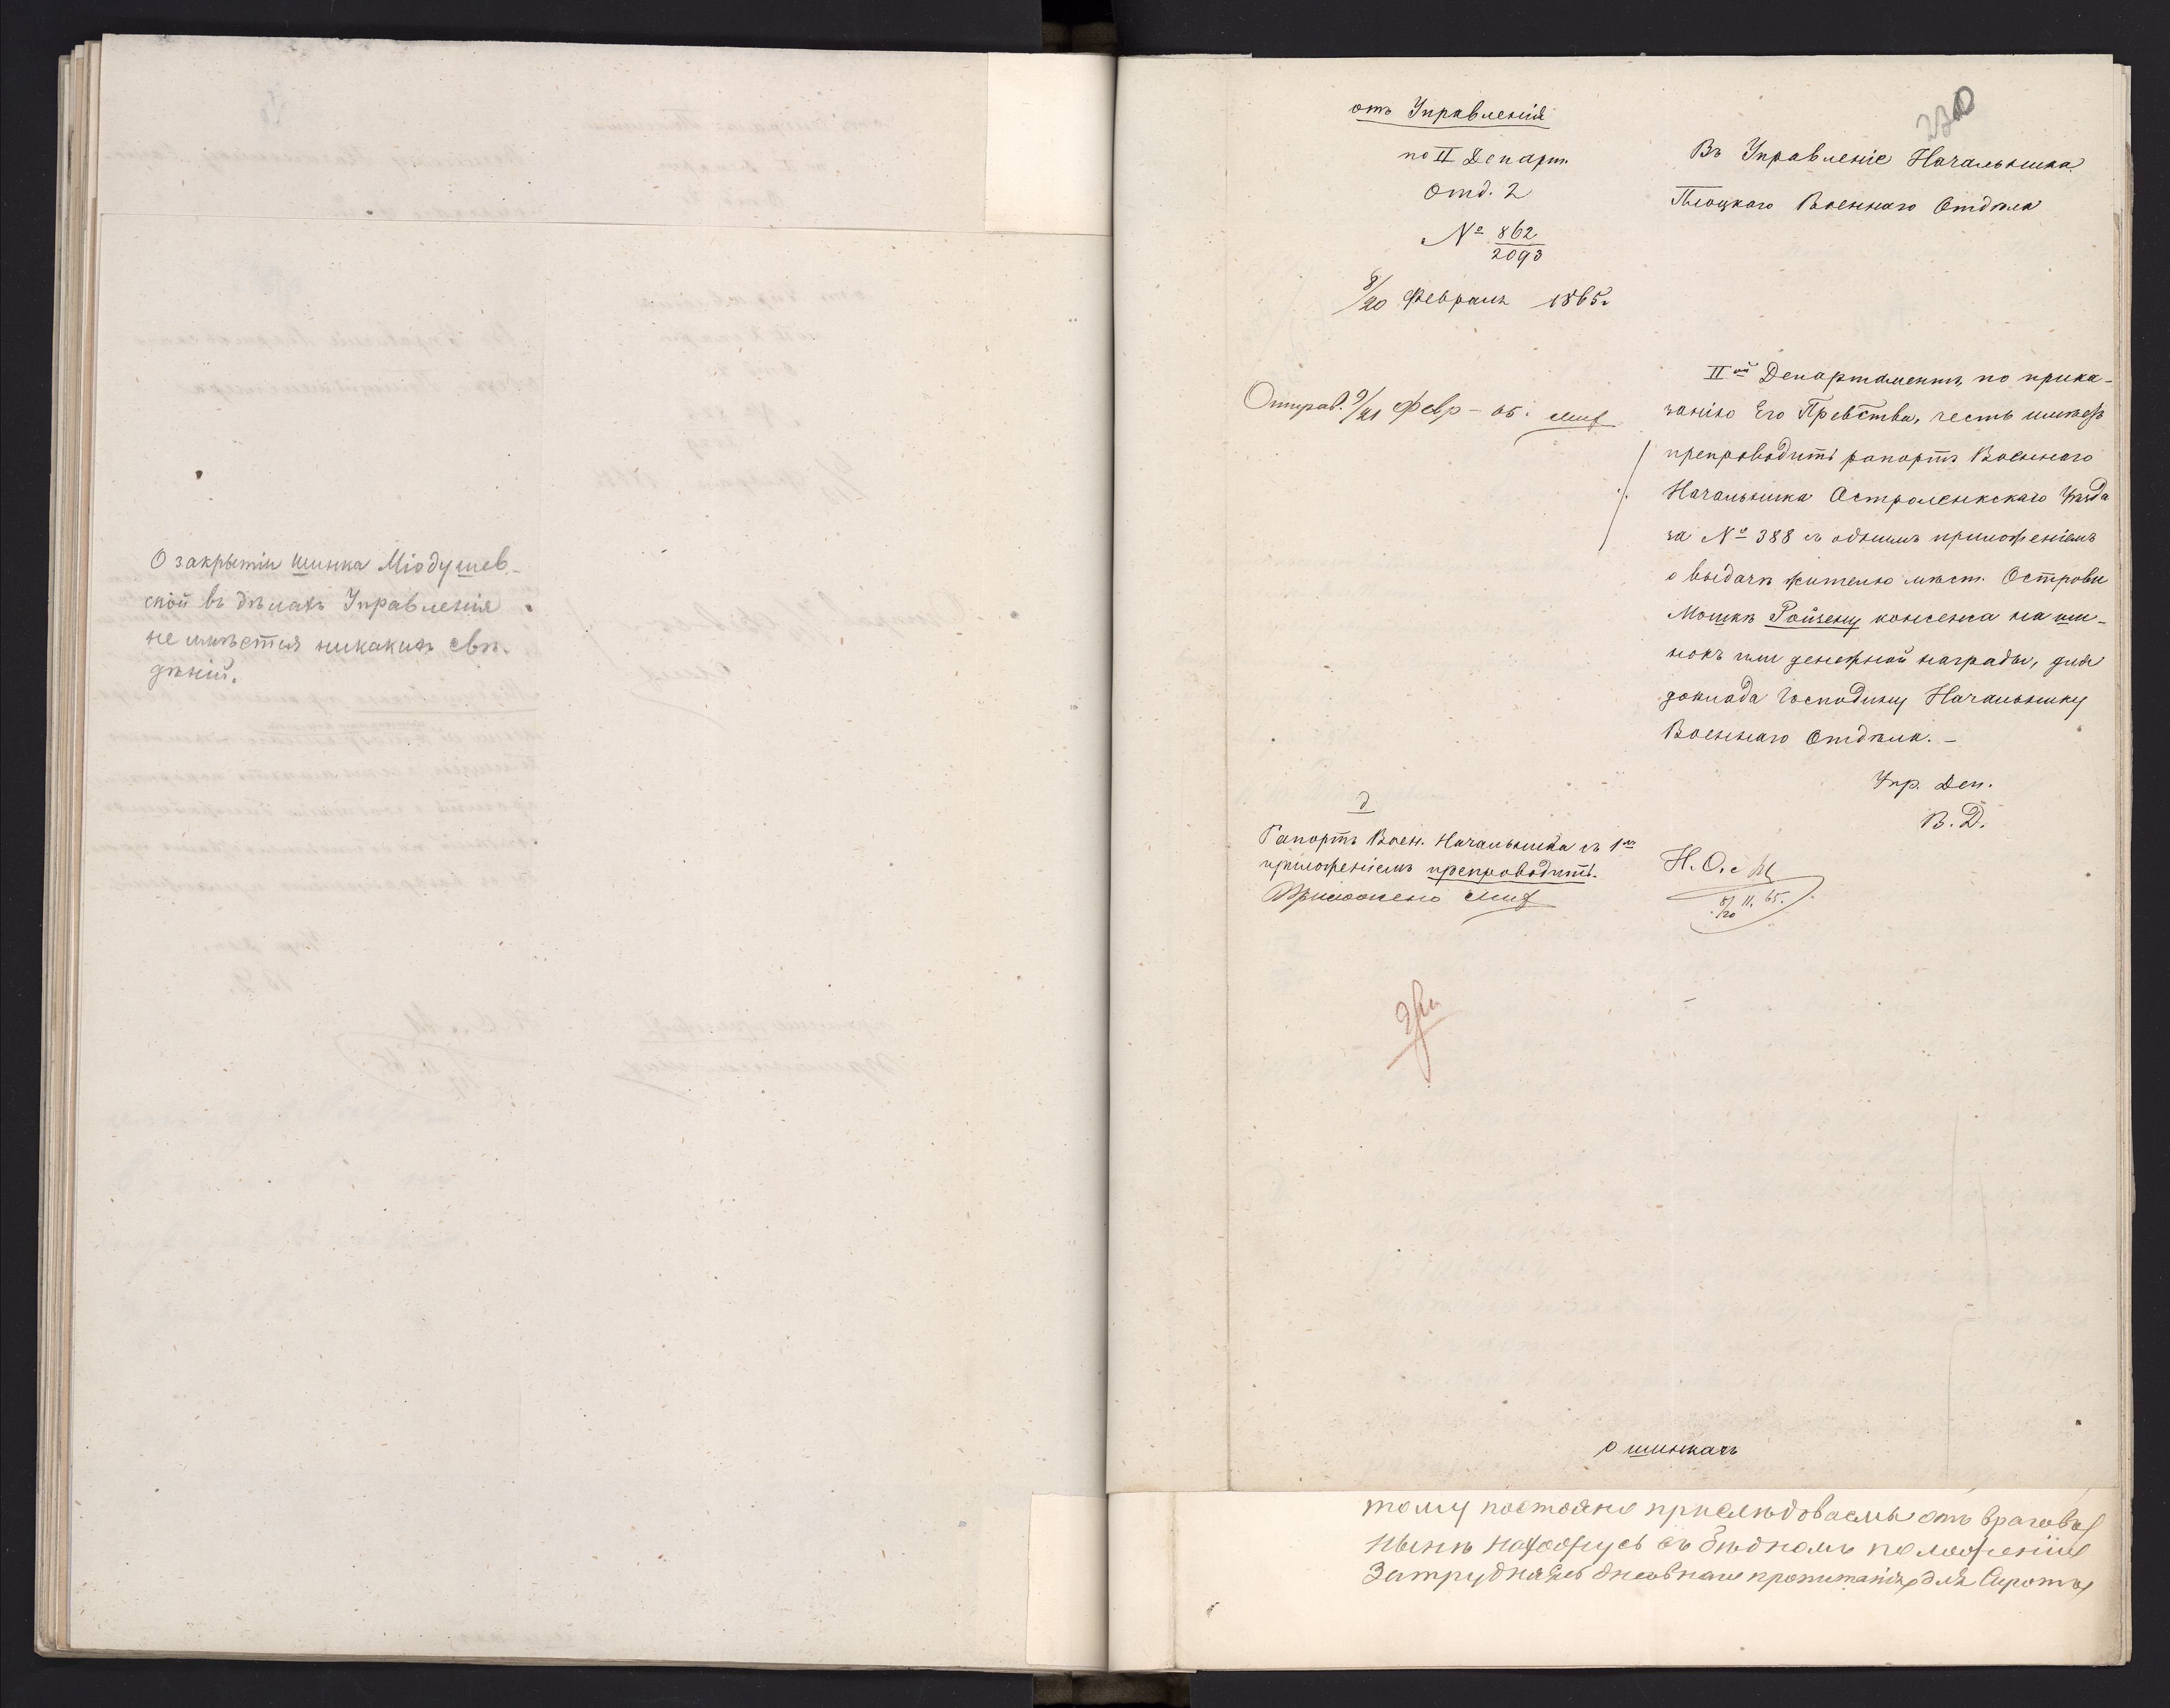 О закрытіи шинка Міодушев-
ской въ дѣлахъ Управленія
не имѣется никакихъ свѣ-
дѣній.
230
отъ Управленія
по II Департ.
Отд. 2
№ 862/2093
8/20 Февраля 1865г.
Въ Управленіе Начальника
Плоцкаго Военнаго Отдѣла
Отправ. 9/21 Февр – 65.
IIой Департаментъ, по прика-
занію Его Прев-ства, честь имѣетъ
препроводить рапортъ Военнаго
Начальника Остроленкскаго Уѣзда
за № 388 съ однимъ приложеніемъ
о выдачѣ жителю мѣст. Островы
Мошкѣ Ройзену консенса на ши-
нокъ или денежной награды, для
доклада Господину Начальнику
Военнаго Отдѣла. –
Упр. Деп.
В. Д.
Н. О. с
8/20 II. 65.
Рапортъ Воен. Начальника съ 1мъ
приложеніемъ препроводить.
Приложено
о шинкахъ
тому постояно прислѣдоваемы отъ враговъ,
нынѣ нахожусь въ бѣдномъ положеніи
Затрудняясь дневнаго пропитанія для Сиротъ,